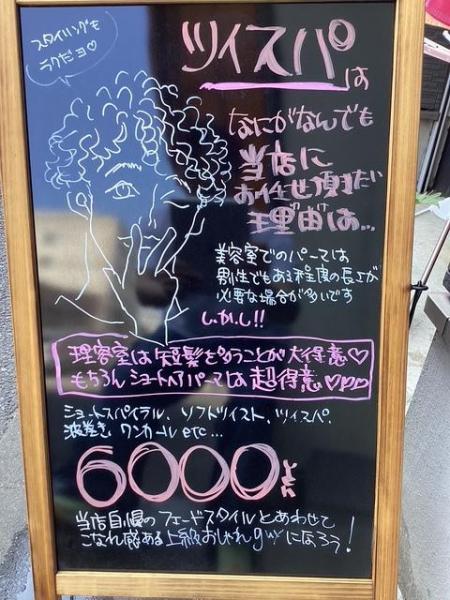 スタイリングも
ラクだヨ♡
ツイスパは
なにがなんでも
当店に
お任せ頂きたい
理由は…
美容室でのパーマは
男性でもある程度の長さが
必要な場合が多いです
しかし!!
理容室は短髪を扱うことが大得意♡
もちろんショートヘアパーマは超得意♡♡♡
ショートスパイラル、ソフトツイスト、ツイスパ、
波巻き、ワンカール etc…
6000
当店自慢のフェードスタイルとあわせて
こなれ感ある上級おしゃれguyになろう!